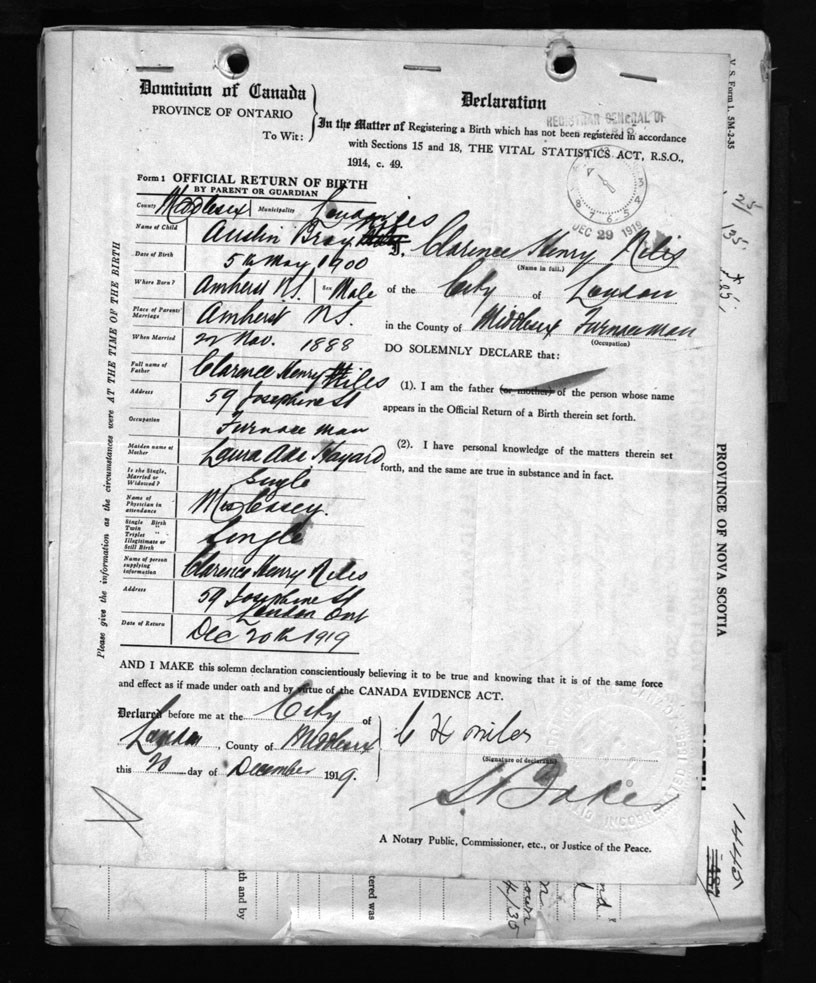 V. S. Form 1. 5M-2-35
Dominion of Canada
PROVINCE OF ONTARIO
To Wit:
Declaration
REGISTRAR GENERAL OF
In the Matter of Registering a Birth which has not been registered in accordance
with Sections 15 and 18, THE VITAL STATISTICS ACT, R.S.O.,
1914, c. 49.
DEC 29 1919
Form 1 OFFICIAL RETURN OF BIRTH
BY PARENT OR GUARDIAN
Please give the information as the circumstances were AT THE TIME OF THE BIRTH
County Middlesex Municipality London
Name of Child Austin Bray
Date of Birth 5th May 1900
Where Born? Amherst N.S. Sex Male
Place of Parents' Marriage Amherst N.S.
When Married 22 Nov. 1888
Full name of Father Clarence Henry Miles
Address 59 Josephine St
Occupation Furnace man
Maiden name of Mother Laura Ada
Is she Single, Married or Widowed? Single
Name of Physician in attendance
Single Birth
Twin "
Triplet "
Illegitimate or
Still Birth
Single
Name of person supplying information Clarence Henry Miles
Address 59 Josephine St
London Ont
Date of Return Dec 20th 1919
I, Clarence Henry Miles
(Name in full.)
of the City of London
in the County of Middlesex Furnaceman
(Occupation)
DO SOLEMNLY DECLARE that:
(1). I am the father (or mother) of the person whose name
appears in the Official Return of a Birth therein set forth.
(2). I have personal knowledge of the matters therein set
forth, and the same are true in substance and in fact.
AND I MAKE this solemn declaration conscientiously believing it to be true and knowing that it is of the same force
and effect as if made under oath and by virtue of the CANADA EVIDENCE ACT.
Declared before me at the City of
London, County of Middlesex
this 20 day of December 1919.
C H Miles
(Signature of declarant)
A Notary Public, Commissioner, etc., or Justice of the Peace.
PROVINCE OF NOVA SCOTIA
th and by
tered was